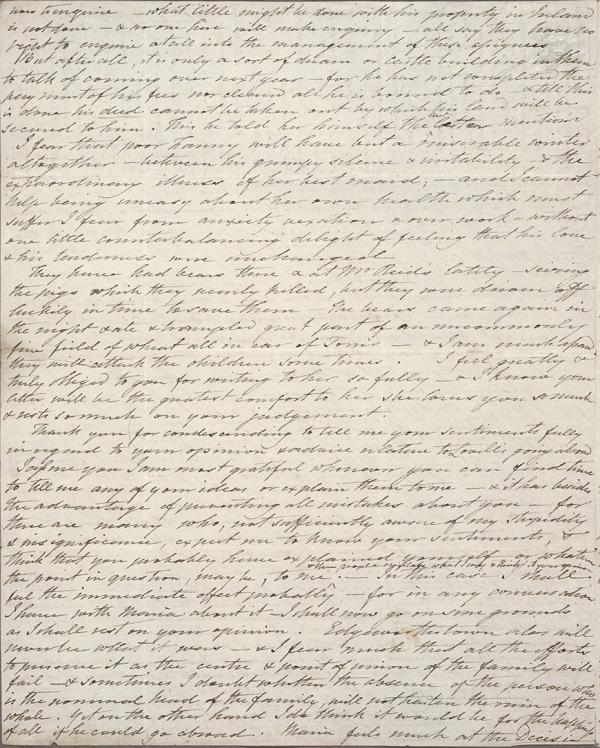 now to enquire — what little might be done with his property in Ireland
is not done — & no one here will make enquiry — all say they have no
right to enquire at all into the management of these
But after all, it is only a sort of dream or castle building in them
to talk of coming over next year — for he has not completed the
payment of his fees nor cleared all he is bound to do — & till this
is done his deed cannot be taken out by which his land will be
secured to him. This he told her himself the last letter mentions
I fear that poor Fanny will have but a miserable winter
altogether — between his grumpy silence & irritability — & the
extraordinary illness of her best maid; — and I cannot
help being uneasy about her own health which must
suffer I fear from anxiety vexation & over work — without
one little counterbalancing delight of feeling that his love
& his tenderness were unchanged
They have had bears there & at Mr Reid's lately — seizing
the pigs which they nearly killed, but they were driven off
luckily in time to save them — The bears came again in
the night & ate & trampled great part of an uncommonly
fine field of wheat all in ear of Tom's — & I am much afraid
they will attack the children some times. I feel greatly &
truly obliged to you for writing to her so fully — & I know your
letter will be the greatest comfort to her she loves you so much
& rests so much on your judgement.
Thank you for condescending to tell me your sentiments fully
in regard to your opinion & advice relative to Lovell's going abroad
I assure you I am most grateful whenever you can find time
to tell me any of your ideas or explain them to me — & it has besides
the advantage of preventing all mistakes about you — for
there are many who, not sufficiently aware of my stupidity
& insignificance, expect me to know your sentiments, &
think that you probably have explained yourself on whatever
the point in question, may be, to me. — In this case I shall
feel the immediate effect probably — for in any conversation
I have with Maria about it — I shall now go on sure grounds
as I shall rest on your opinion. Edgeworthstown alas will
never be what it was — & I fear much that all the efforts
to preserve it as the centre & point of union of the family will
fail — & sometimes I doubt whether the absence of the person who
is the nominal head of the family, will not hasten the ruin of the
whole. Yet on the other hand I do think it would be for the happiness
of all if he could go abroad. Maria feels much at the